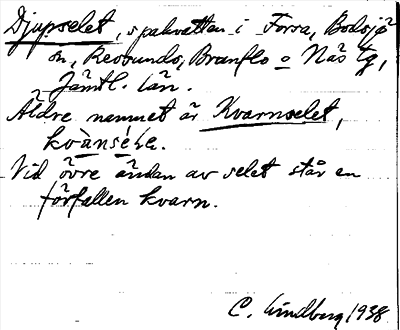 Djupselet, spakvatten i Forsa, Bodsjö
sn, Revsunds, Brunflo o Näs tg,
Jämtl. län.
Äldre namnet är Kvarnselet,
Vid övre ändan av selet står en
förfallen kvarn.
C. Lindberg 1938